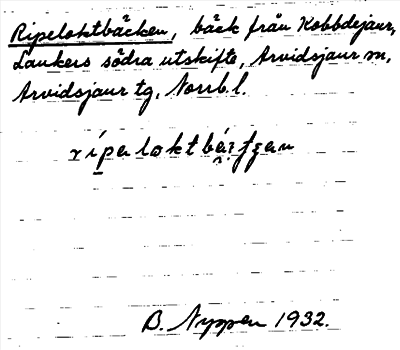 Ripeloktbäcken, bäck från Kobbdejaur,
Laukers södra utskifte, Arvidsjaur sn,
Arvidsjaur tg, Norrb. l.
B. Nyppen 1932.